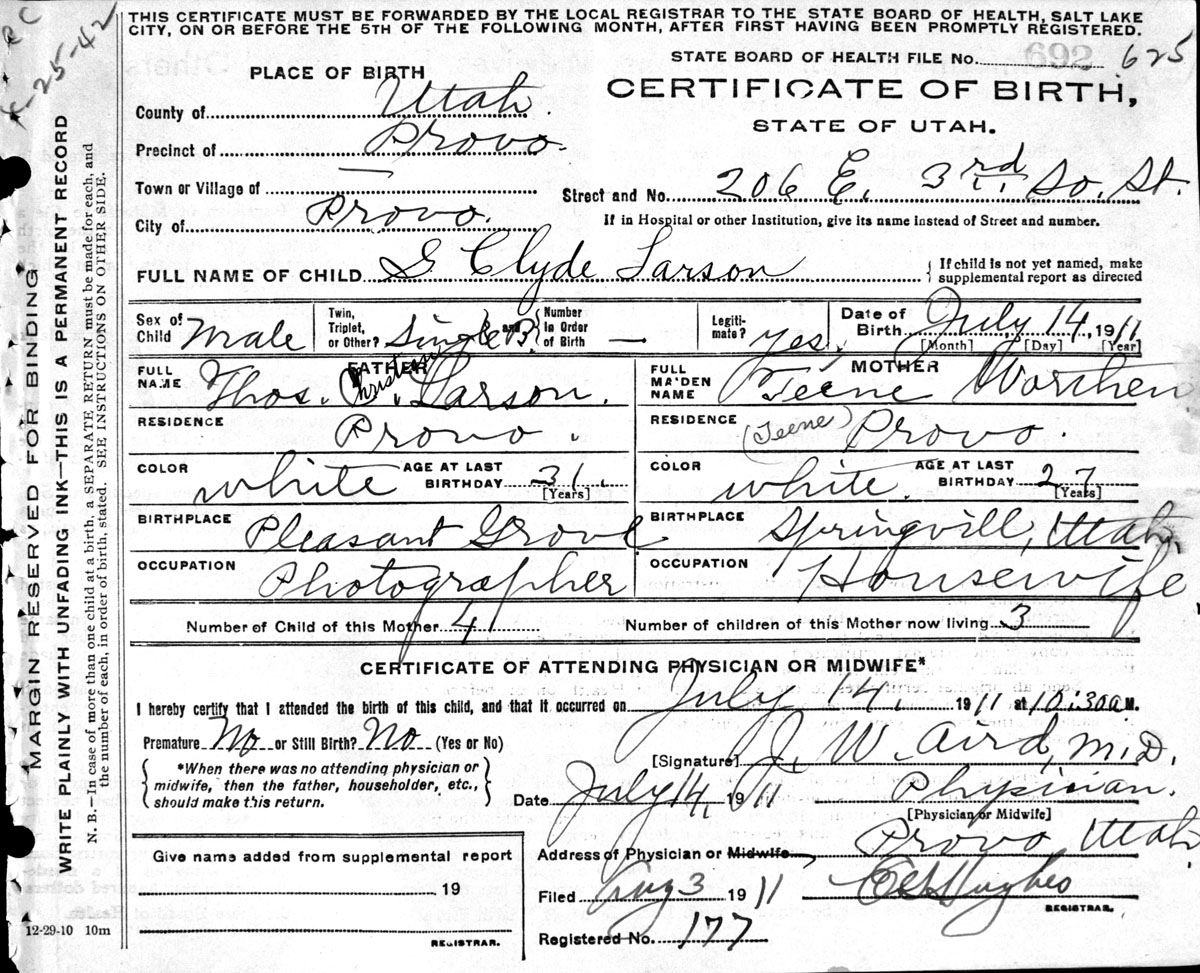 THIS CERTIFICATE MUST BE FORWARDED BY THE LOCAL REGISTRAR TO THE STATE BOARD OF HEALTH, SALT LAKE
CITY, ON OR BEFORE THE 5TH OF THE FOLLOWING MONTH, AFTER FIRST HAVING BEEN PROMPTLY REGISTERED.
STATE BOARD OF HEALTH FILE No. 692 625
PLACE OF BIRTH
CERTIFICATE OF BIRTH,
STATE OF UTAH.
County of Utah
Precinct of Provo.
Town or Village of —
Street and No. 206 E. 3rd So. St.
City of Provo.
If in Hospital or other Institution, give its name instead of Street and number.
FULL NAME OF CHILD S Clyde Larson
{ If child is not yet named, make
supplemental report as directed
Sex of Child Male
Twin, Triplet, or Other? Single and
Number In Order of Birth —
Legitimate? yes.
Date of Birth July 14, 1911
[Month] [Day] [Year]
FATHER
MOTHER
FULL NAME Thos. Christen. Larson.
FULL MAIDEN NAME Teene Worthen
RESIDENCE Provo.
RESIDENCE (Teene) Provo.
COLOR white
AGE AT LAST BIRTHDAY 31. [Years]
COLOR white.
AGE AT LAST BIRTHDAY 27 [Years]
BIRTHPLACE Pleasant Grove
BIRTHPLACE Springvill, Utah.
OCCUPATION Photographer
OCCUPATION Housewife
Number of Child of this Mother 4
Number of children of this Mother now living 3
CERTIFICATE OF ATTENDING PHYSICIAN OR MIDWIFE*
I hereby certify that I attended the birth of this child, and that it occurred on July 14, 1911 at 10:30 a M.
Premature No or Still Birth? No (Yes or No)
{ *When there was no attending physician or
midwife, then the father, householder, etc.,
should make this return. }
[Signature] J. W. Aird, M.D.
Date July 14, 1911
Physician.
[Physician or Midwife]
Address of Physician or Midwife Provo, Utah
Give name added from supplemental report
19
REGISTRAR.
Filed Aug 3 1911
Hughes
REGISTRAR.
Registered No. 177
12-29-10 10m
MARGIN RESERVED FOR BINDING
WRITE PLAINLY WITH UNFADING INK—THIS IS A PERMANENT RECORD
N. B.—In case of more than one child at a birth, a SEPARATE RETURN must be made for each, and
the number of each, in order of birth, stated. SEE INSTRUCTIONS ON OTHER SIDE.
25-42